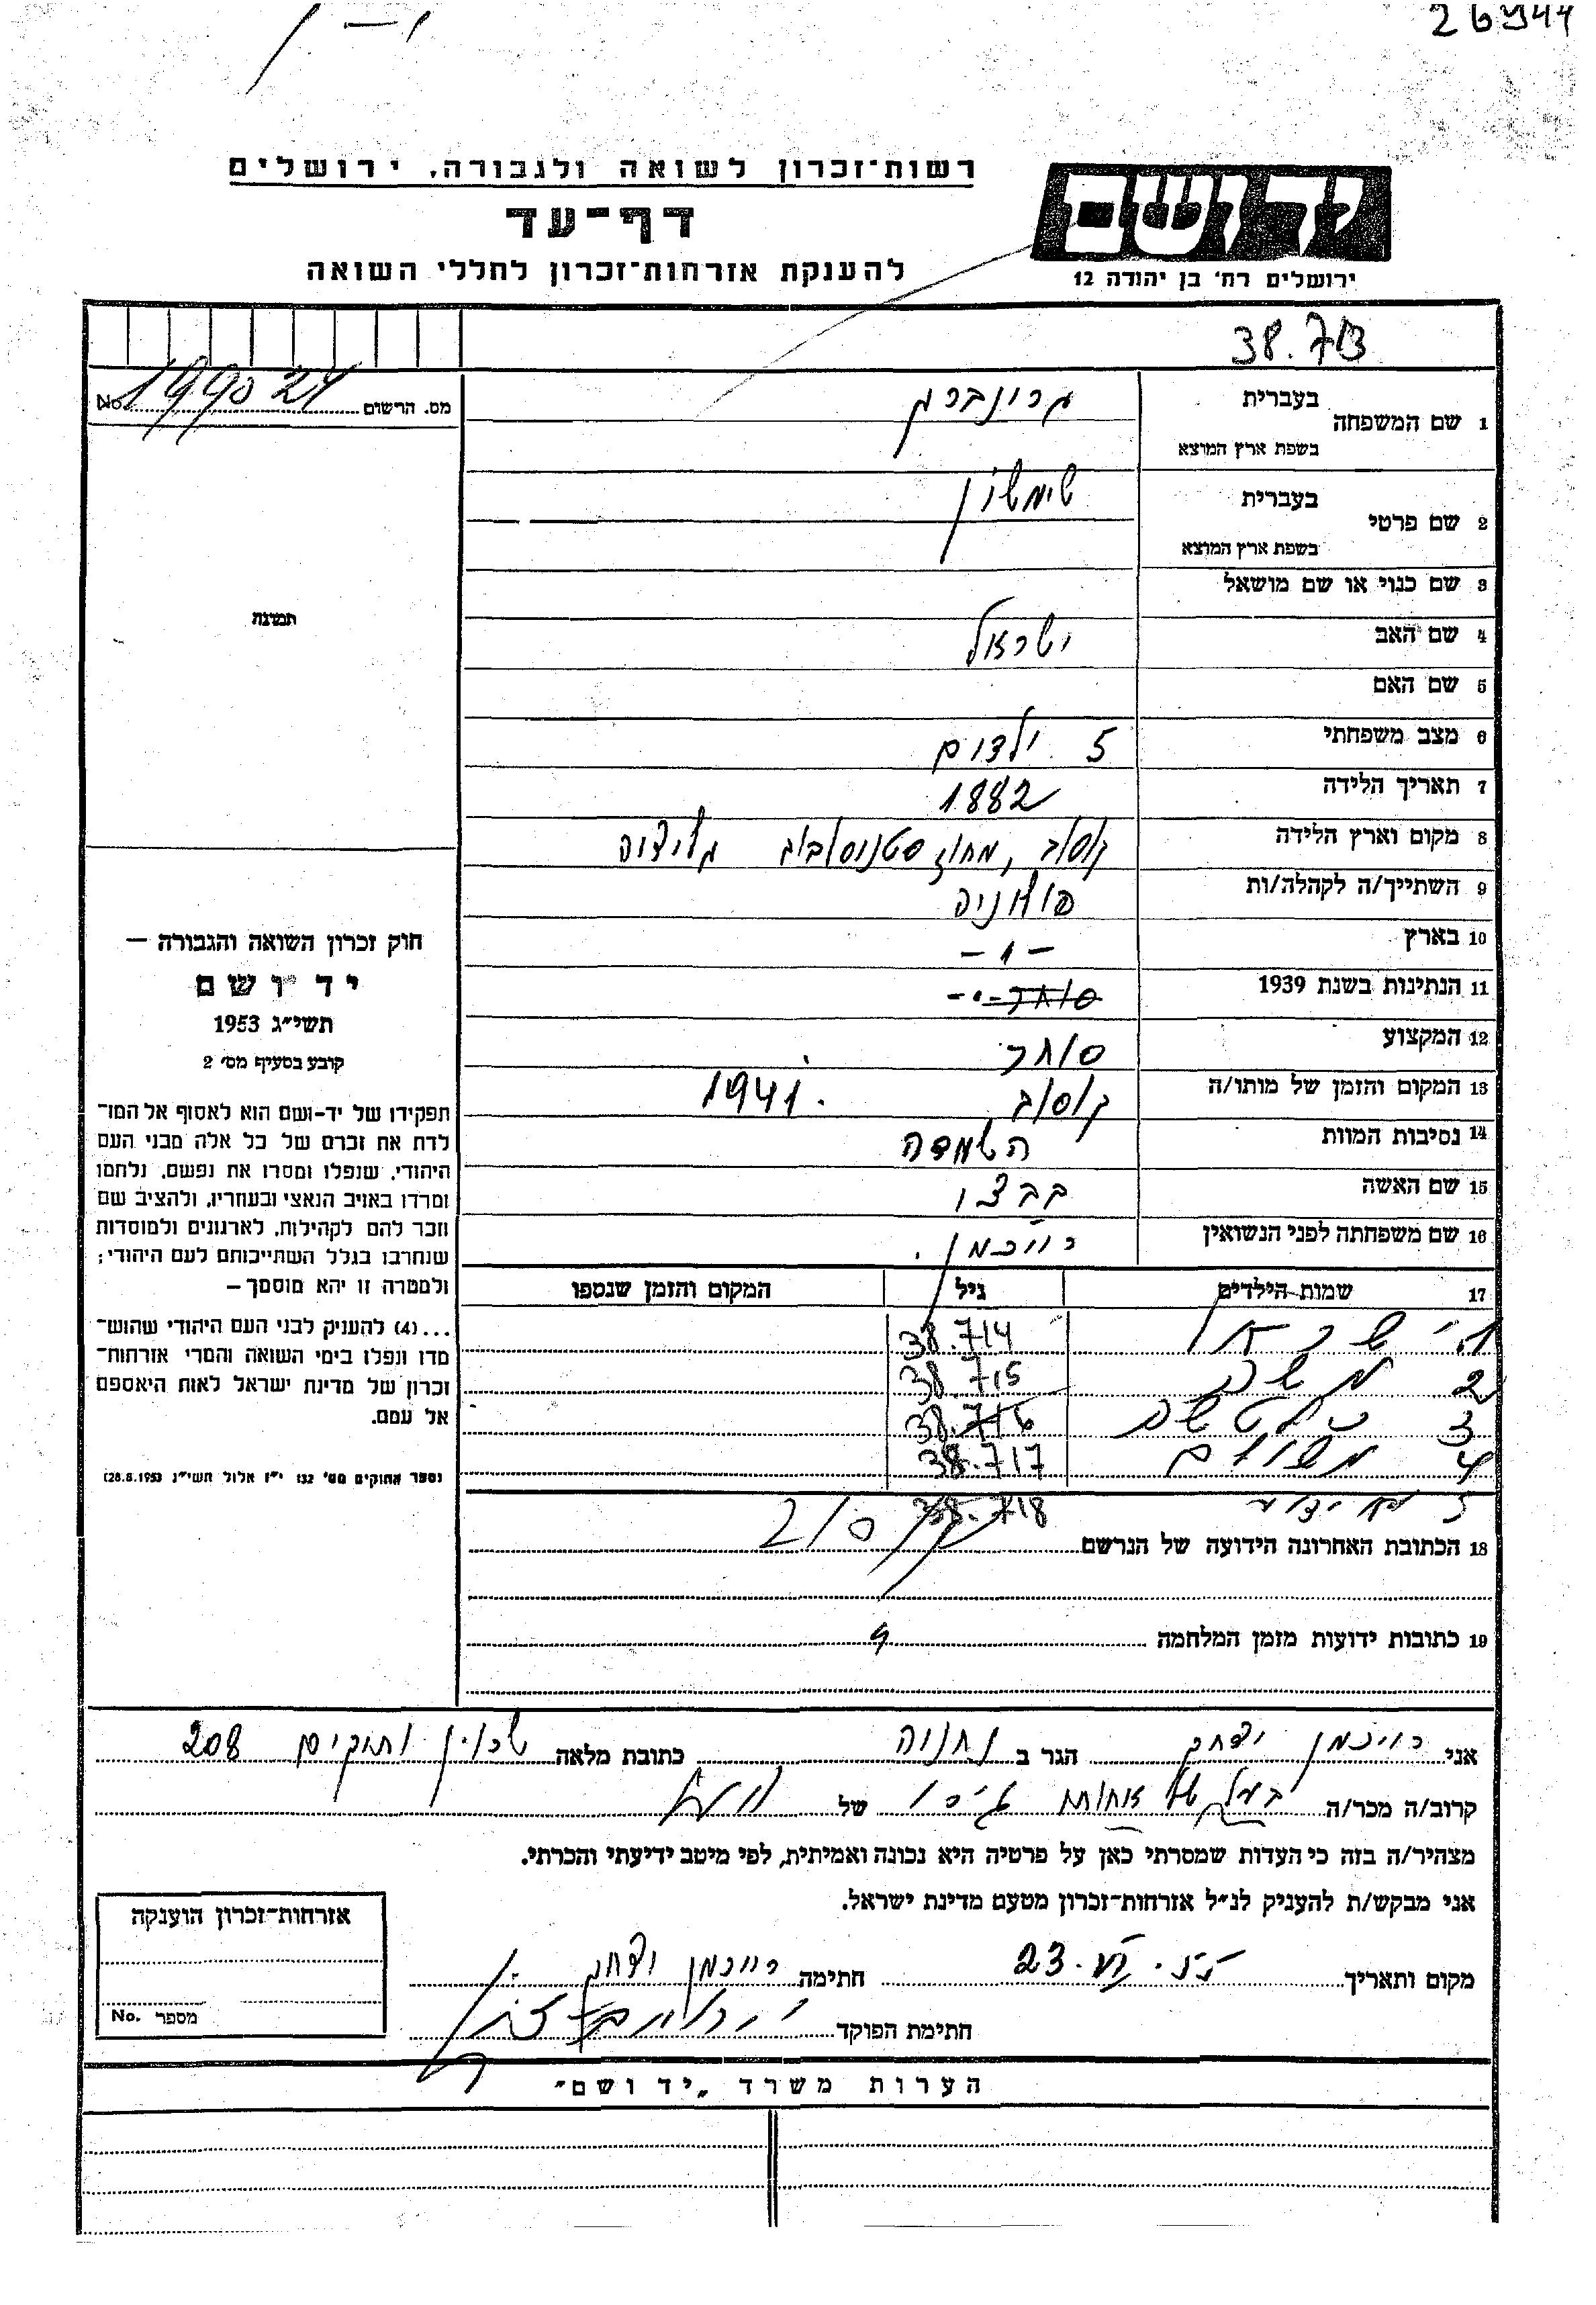 26944
רשות־זכרון לשואה ולגבורה, ירושלים
יד ושם
דף־עד
להענקת אזרחות־זכרון לחללי השואה
ירושלים רח' בן יהודה 12
38.713
מס. הרשום No. 199024
1 שם המשפחה בעברית גרינברג
בשפת ארץ המוצא
2 שם פרטי בעברית שימשון
בשפת ארץ המוצא
3 שם כנוי או שם מושאל
תמונה
4 שם האב ישראל
5 שם האם
6 מצב משפחתי 5 ילדים
7 תאריך הלידה 1882
8 מקום וארץ הלידה קוסוב, מחוז סטניסלבוב גליציה
9 השתייך/ה לקהלה/ות פולניה
10 בארץ -"-
11 הנתינות בשנת 1939 סוחר -"-
12 המקצוע סוחר
13 המקום והזמן של מותו/ה קוסוב 1941.
14 נסיבות המוות השמדה
15 שם האשה
16 שם משפחתה לפני הנשואין רייכמן.
17 שמות הילדים גיל המקום והזמן שנספו
1 ישראל 38.714
2 משה 38.715
3 38.716
4 משולם 38.717
5 לא ידוע 38.718
18 הכתובת האחרונה הידועה של הנרשם קוסוב
19 כתובות ידועות מזמן המלחמה
חוק זכרון השואה והגבורה —
יד ושם
תשי״ג 1953
קובע בסעיף מס' 2
תפקידו של יד-ושם הוא לאסוף אל המו־
לדת את זכרם של כל אלה מבני העם
היהודי, שנפלו ומסרו את נפשם, נלחמו
ומרדו באויב הנאצי ובעוזריו, ולהציב שם
וזכר להם לקהילות, לארגונים ולמוסדות
שנחרבו בגלל השתייכותם לעם היהודי;
ולמטרה זו יהא מוסמך —
...(4) להעניק לבני העם היהודי שהוש־
מדו ונפלו בימי השואה והמרי אזרחות־
זכרון של מדינת ישראל לאות היאספם
אל עמם.
(ספר החוקים מס' 132 י״ז אלול תשי״ג 28.8.1953)
אני רייכמן יצחק הגר ב נתניה כתובת מלאה שכון ותיקים 208
קרוב/ה מכר/ה של
מצהיר/ה בזה כי העדות שמסרתי כאן על פרטיה היא נכונה ואמיתית, לפי מיטב ידיעתי והכרתי.
אני מבקש/ת להעניק לנ״ל אזרחות־זכרון מטעם מדינת ישראל.
מקום ותאריך 23.VI.55 חתימה רייכמן יצחק
חתימת הפוקד
אזרחות־זכרון הוענקה
מספר No.
הערות משרד „יד ושם״